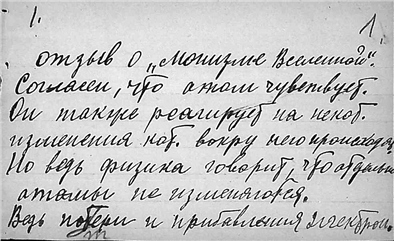 1. 1
отзыв о „Монизме Вселенной".
Согласен, что атом чувствует.
Он также реагирует на некот.
изменения кот. вокру него происходят
Но ведь физика говорит, что отдельные
атомы не изменяются.
Ведь потери и прибавления электрон.